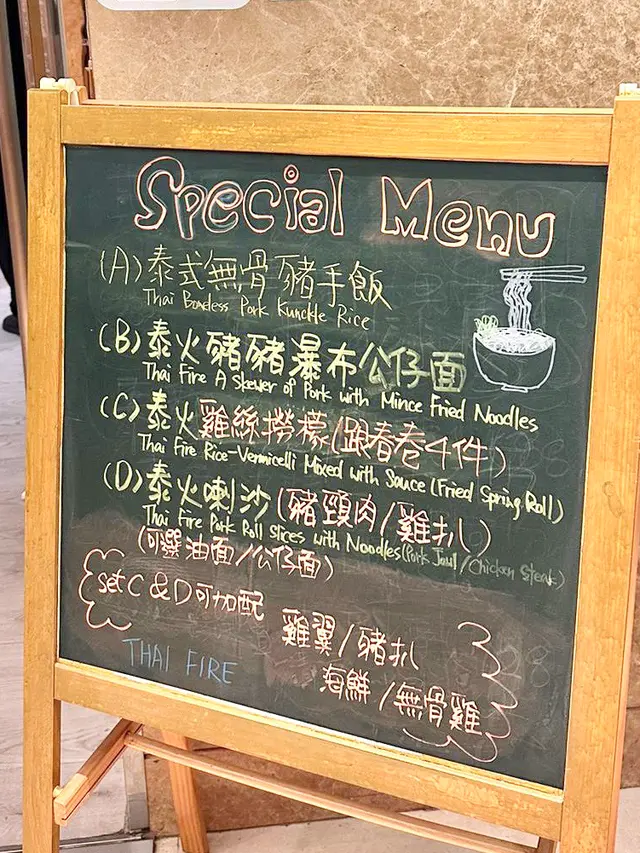 Special Menu
(A) 泰式無骨豬手飯
Thai Boneless Pork Kunckle Rice
(B) 泰火豬豬瀑布公仔面
Thai Fire A Skewer of Pork with Mince Fried Noodles
(C) 泰火雞絲撈檬(跟春卷4件)
Thai Fire Rice-Vermicelli Mixed with Sauce (Fried Spring Roll)
(D) 泰火喇沙(豬頸肉/雞扒)
Thai Fire Pork Roll Slices with Noodles (Pork Jowl / Chicken Steak)
(可選油面/公仔面)
set C & D 可加配
雞翼/豬扒
海鮮/無骨雞
THAI FIRE